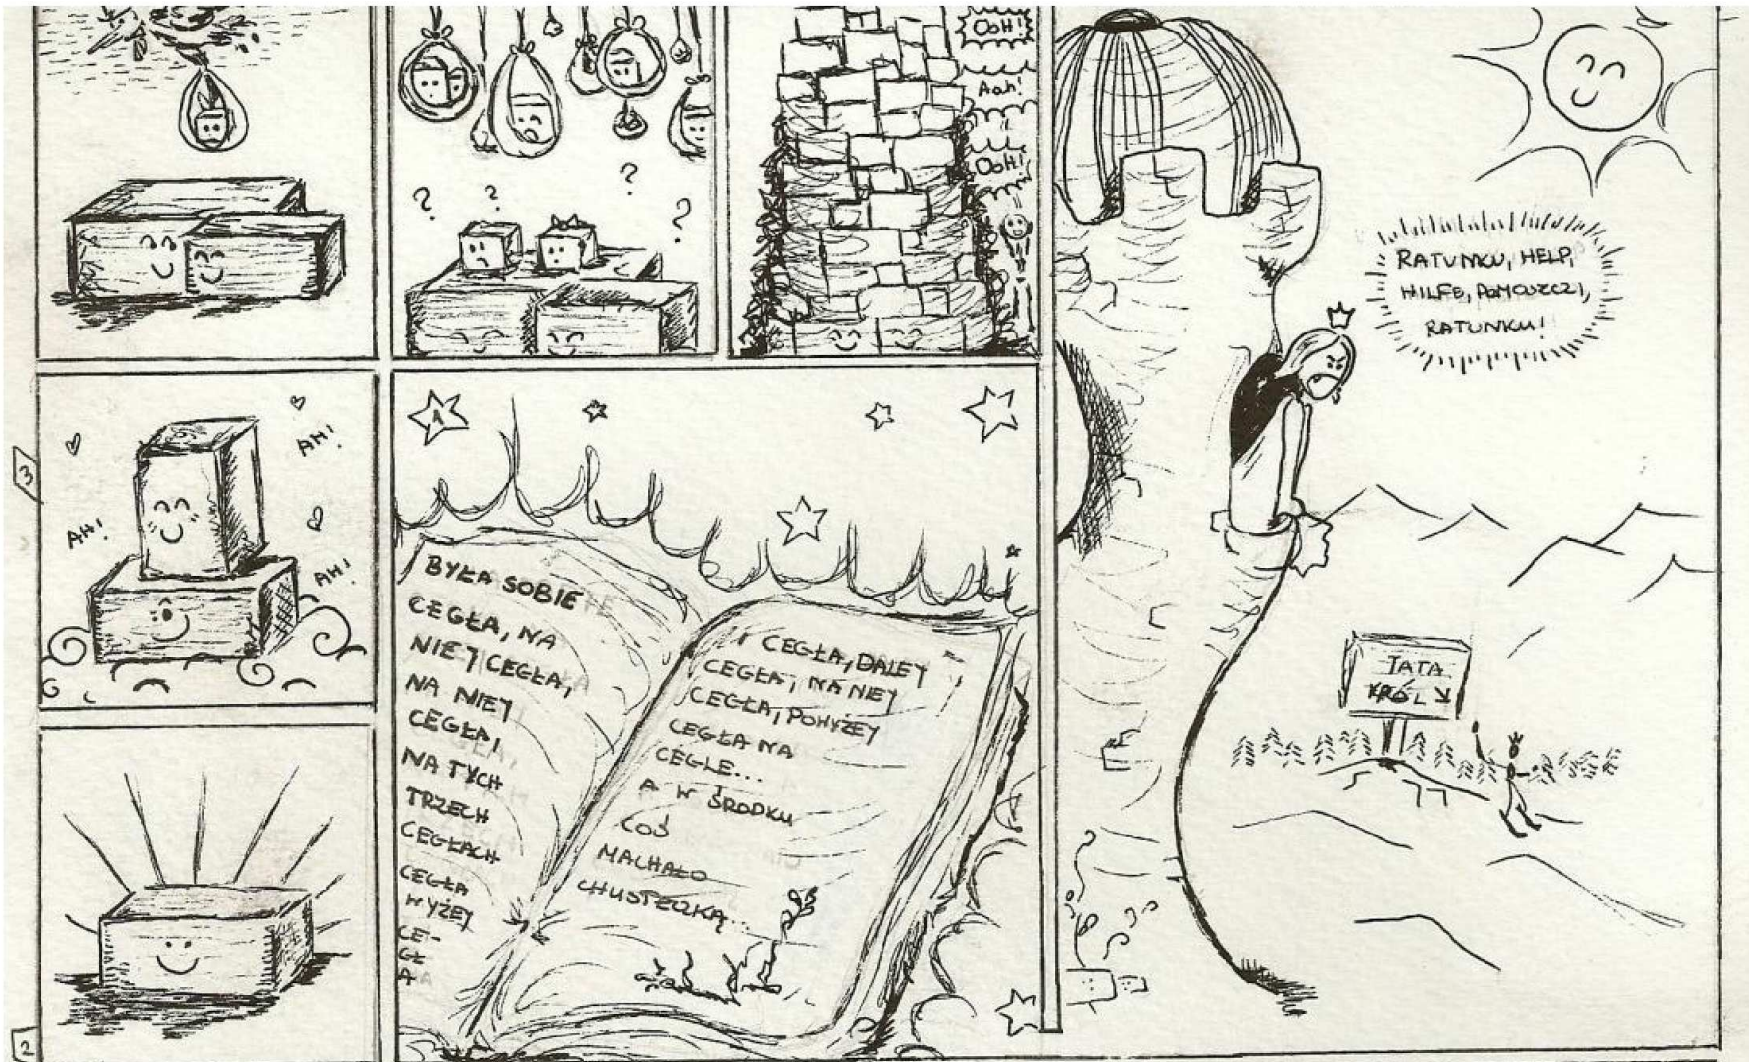 ? ? ? ?
OOH!
Aah!
OOH!
RATUNKU, HELP,
HILFE,
RATUNKU!
3
AH!
AH!
AH!
BYŁA SOBIE
CEGŁA, NA
NIEJ CEGŁA,
NA NIEJ
CEGŁA,
NA TYCH
TRZECH
CEGŁACH
CEGŁA
WYŻEJ
CE-
GŁ
A
I CEGŁA, DALEJ
CEGŁA, NA NIEJ
CEGŁA, POWYŻEJ
CEGŁA NA
CEGLE...
A W ŚRODKU
COŚ
MACHAŁO
CHUSTECZKĄ...
TATA
KRÓL
2